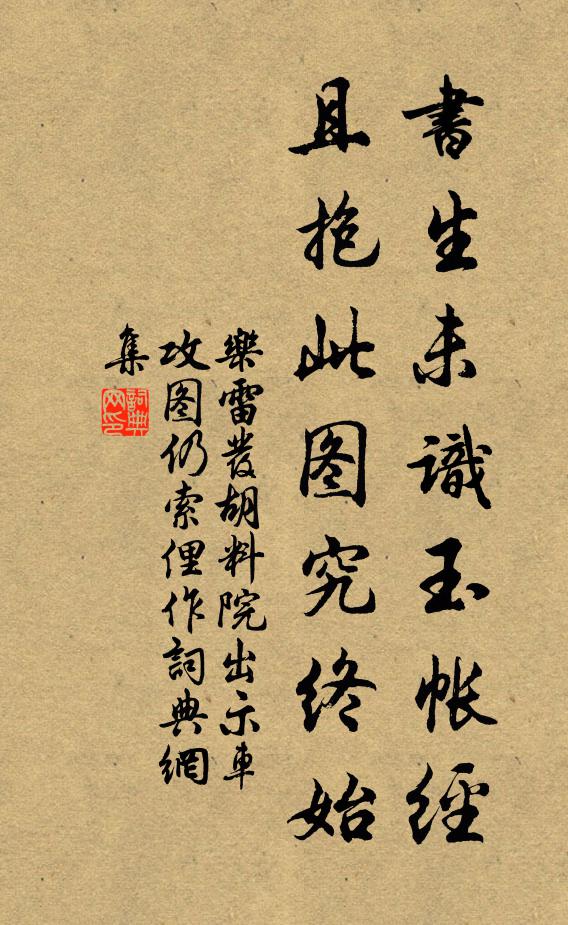 書生未識玉帳經
且抱此图究終始
樂雷發胡料院出示車
攻图仍索俚作詞典網
集
詞典
网印